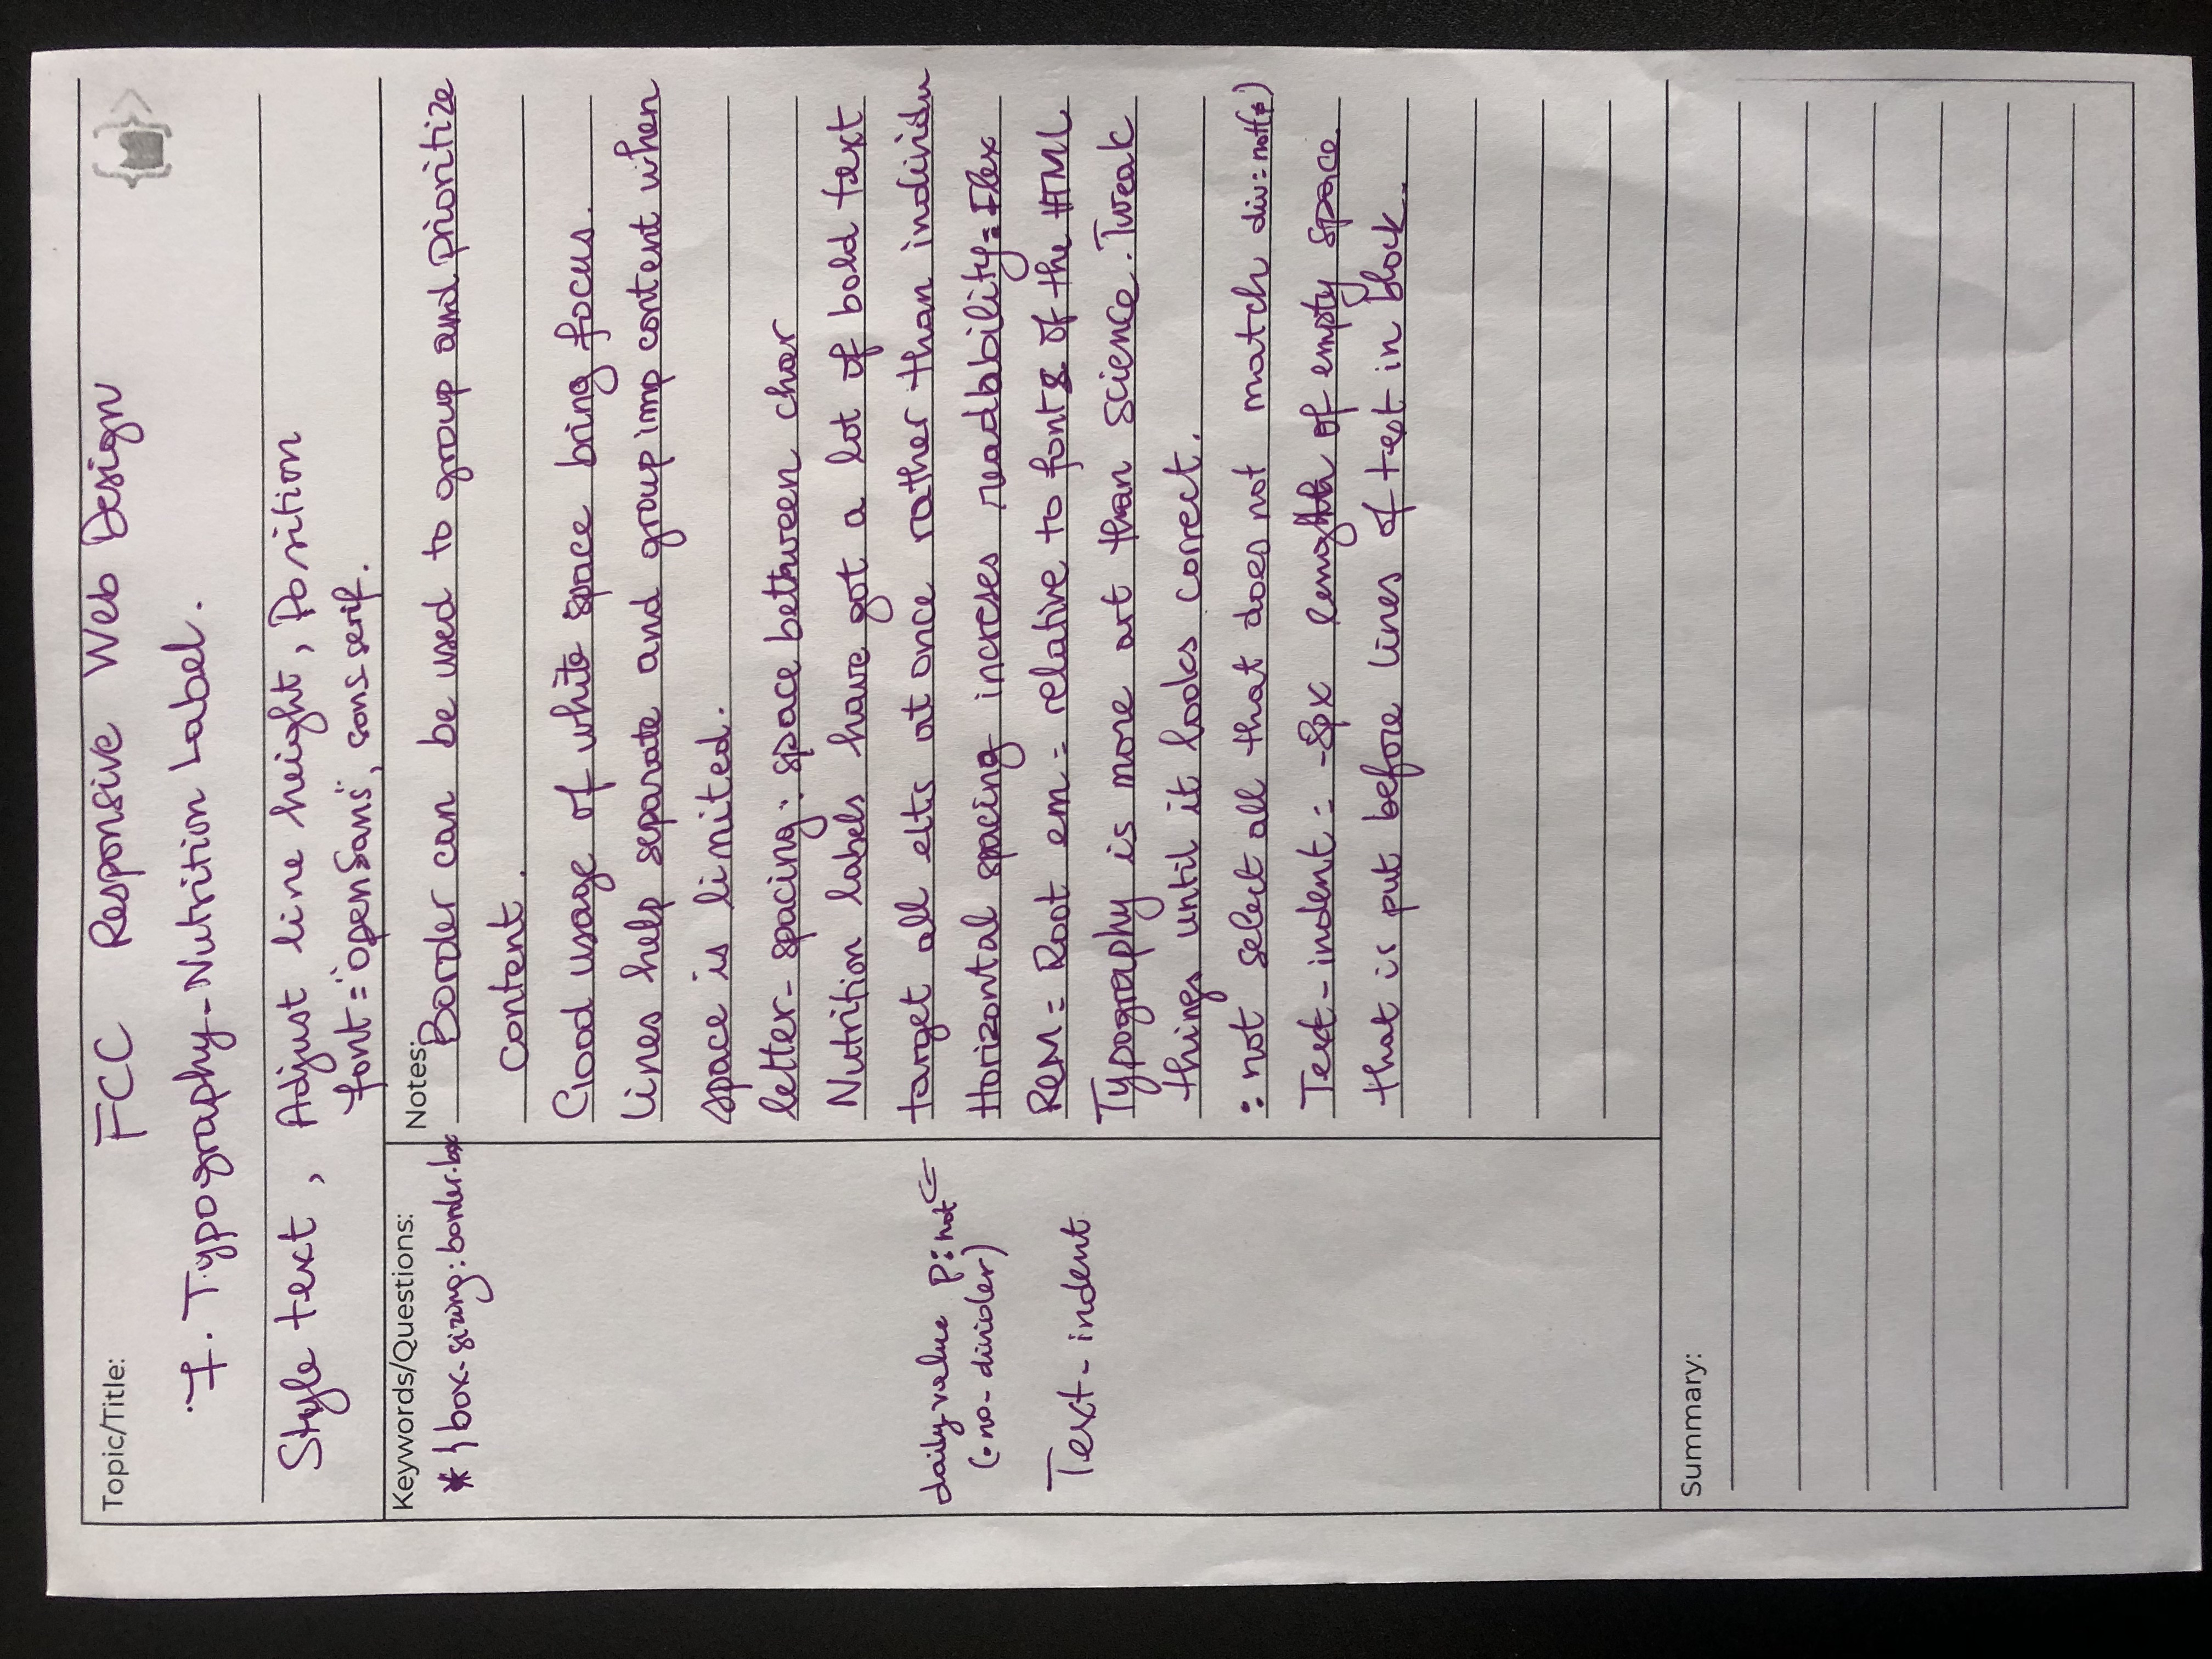 Topic/Title:
FCC Responsive Web Design
7. Typography-Nutrition Label.
Style text, Adjust line height, Position
font="open Sans", sans serif.
Keywords/Questions:
* { box-sizing: border-box
daily value p:not
(.no-divider)
Text-indent
Notes:
Border can be used to group and prioritize
content.
Good usage of white space bring focus.
lines help separate and group imp content when
space is limited.
letter-spacing: space bettween char
Nutrition labels have got a lot of bold text
target all elts at once rather than individu
Horizontal spacing increses readbability= Flex
REM = Root em = relative to font of the HTML
Typography is more art than science. Tweak
things until it looks correct.
:not select all that does not match
Text-indent = -8px length of empty space
that is put before lines of text in block.
Summary: